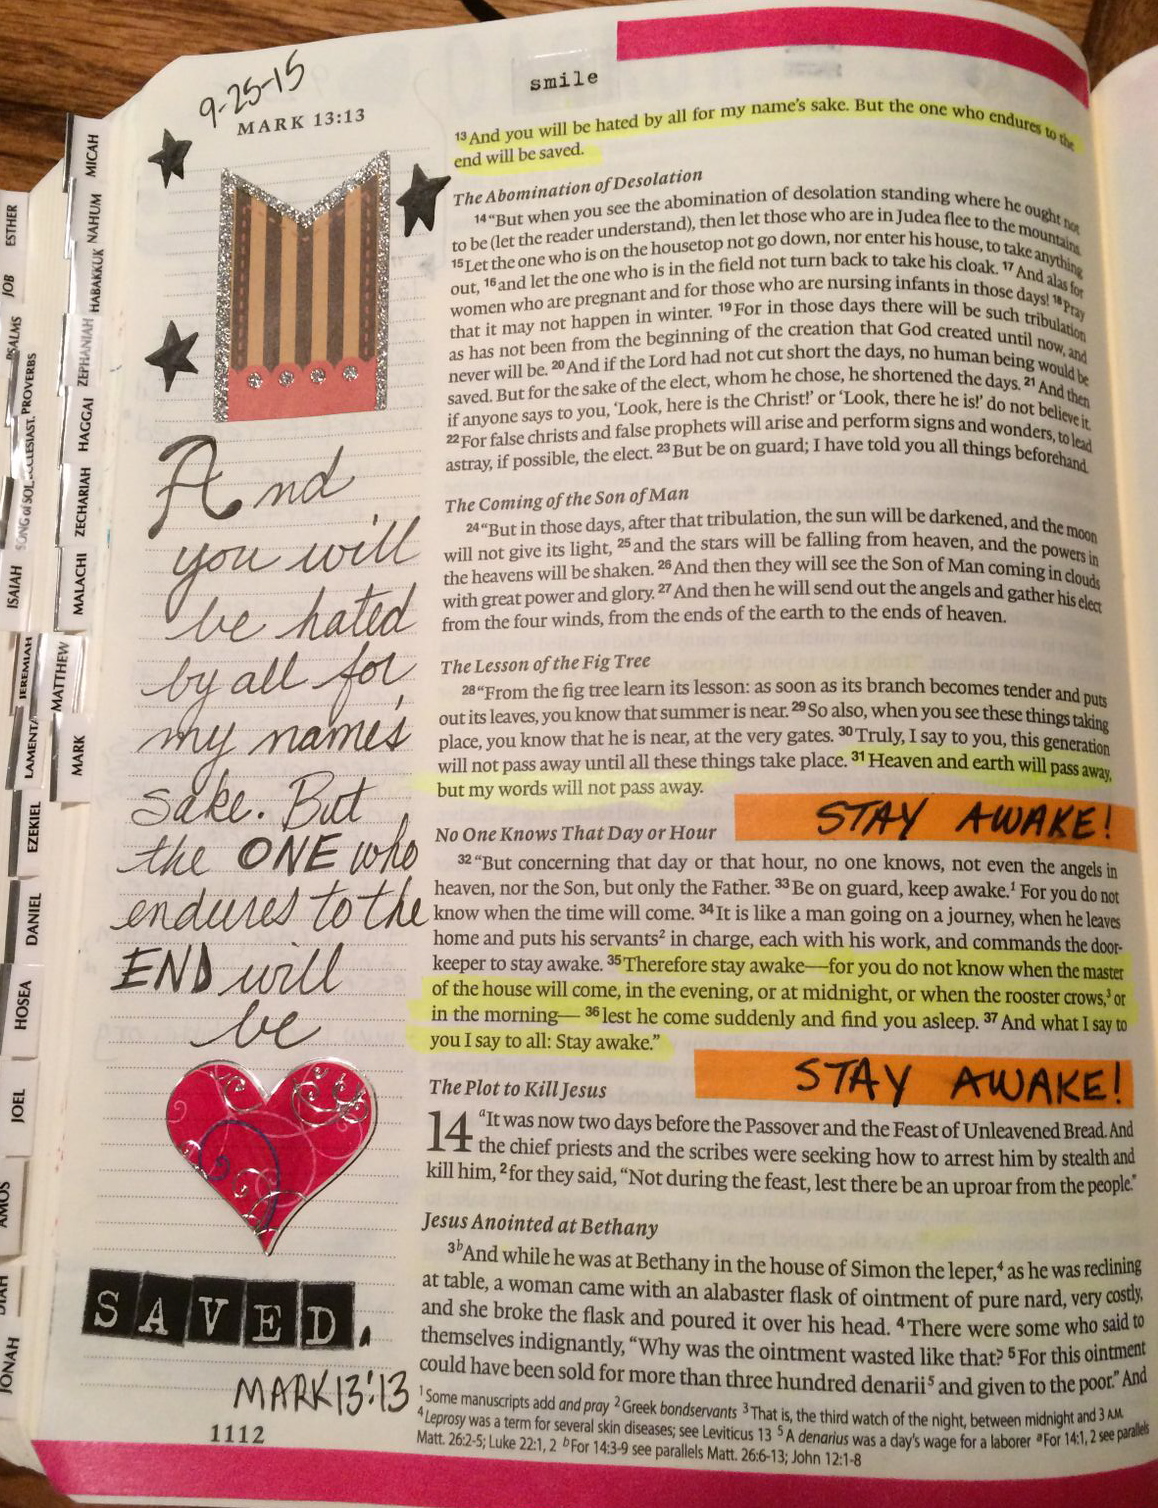 9-25-15
MARK 13:13
smile
ESTHER
JOB
PSALMS
PROVERBS
ECCLESIAST.
SONG of SOL.
ISAIAH
JEREMIAH
LAMENTA
EZEKIEL
DANIEL
HOSEA
JOEL
AMOS
JONAH
MICAH
NAHUM
HABAKKUK
ZEPHANIAH
HAGGAI
ZECHARIAH
MALACHI
MATTHEW
MARK
And
you will
be hated
by all for
my name's
sake. But
the ONE who
endures to the
END will
be
SAVED.
MARK 13:13
1112
13 And you will be hated by all for my name's sake. But the one who endures to the
end will be saved.
The Abomination of Desolation
14 “But when you see the abomination of desolation standing where he ought not
to be (let the reader understand), then let those who are in Judea flee to the mountains.
15 Let the one who is on the housetop not go down, nor enter his house, to take anything
out, 16 and let the one who is in the field not turn back to take his cloak. 17 And alas for
women who are pregnant and for those who are nursing infants in those days! 18 Pray
that it may not happen in winter. 19 For in those days there will be such tribulation
as has not been from the beginning of the creation that God created until now, and
never will be. 20 And if the Lord had not cut short the days, no human being would be
saved. But for the sake of the elect, whom he chose, he shortened the days. 21 And then
if anyone says to you, ‘Look, here is the Christ!’ or ‘Look, there he is!’ do not believe it.
22 For false christs and false prophets will arise and perform signs and wonders, to lead
astray, if possible, the elect. 23 But be on guard; I have told you all things beforehand.
The Coming of the Son of Man
24 “But in those days, after that tribulation, the sun will be darkened, and the moon
will not give its light, 25 and the stars will be falling from heaven, and the powers in
the heavens will be shaken. 26 And then they will see the Son of Man coming in clouds
with great power and glory. 27 And then he will send out the angels and gather his elect
from the four winds, from the ends of the earth to the ends of heaven.
The Lesson of the Fig Tree
28 “From the fig tree learn its lesson: as soon as its branch becomes tender and puts
out its leaves, you know that summer is near. 29 So also, when you see these things taking
place, you know that he is near, at the very gates. 30 Truly, I say to you, this generation
will not pass away until all these things take place. 31 Heaven and earth will pass away,
but my words will not pass away.
STAY AWAKE!
No One Knows That Day or Hour
32 “But concerning that day or that hour, no one knows, not even the angels in
heaven, nor the Son, but only the Father. 33 Be on guard, keep awake.1 For you do not
know when the time will come. 34 It is like a man going on a journey, when he leaves
home and puts his servants2 in charge, each with his work, and commands the door-
keeper to stay awake. 35 Therefore stay awake—for you do not know when the master
of the house will come, in the evening, or at midnight, or when the rooster crows,3 or
in the morning— 36 lest he come suddenly and find you asleep. 37 And what I say to
you I say to all: Stay awake.”
STAY AWAKE!
The Plot to Kill Jesus
14 a It was now two days before the Passover and the Feast of Unleavened Bread. And
the chief priests and the scribes were seeking how to arrest him by stealth and
kill him, 2 for they said, “Not during the feast, lest there be an uproar from the people.”
Jesus Anointed at Bethany
3 b And while he was at Bethany in the house of Simon the leper,4 as he was reclining
at table, a woman came with an alabaster flask of ointment of pure nard, very costly,
and she broke the flask and poured it over his head. 4 There were some who said to
themselves indignantly, “Why was the ointment wasted like that? 5 For this ointment
could have been sold for more than three hundred denarii5 and given to the poor.” And
1 Some manuscripts add and pray 2 Greek bondservants 3 That is, the third watch of the night, between midnight and 3 A.M.
4 Leprosy was a term for several skin diseases; see Leviticus 13 5 A denarius was a day's wage for a laborer a For 14:1, 2 see parallels
Matt. 26:2-5; Luke 22:1, 2 b For 14:3-9 see parallels Matt. 26:6-13; John 12:1-8